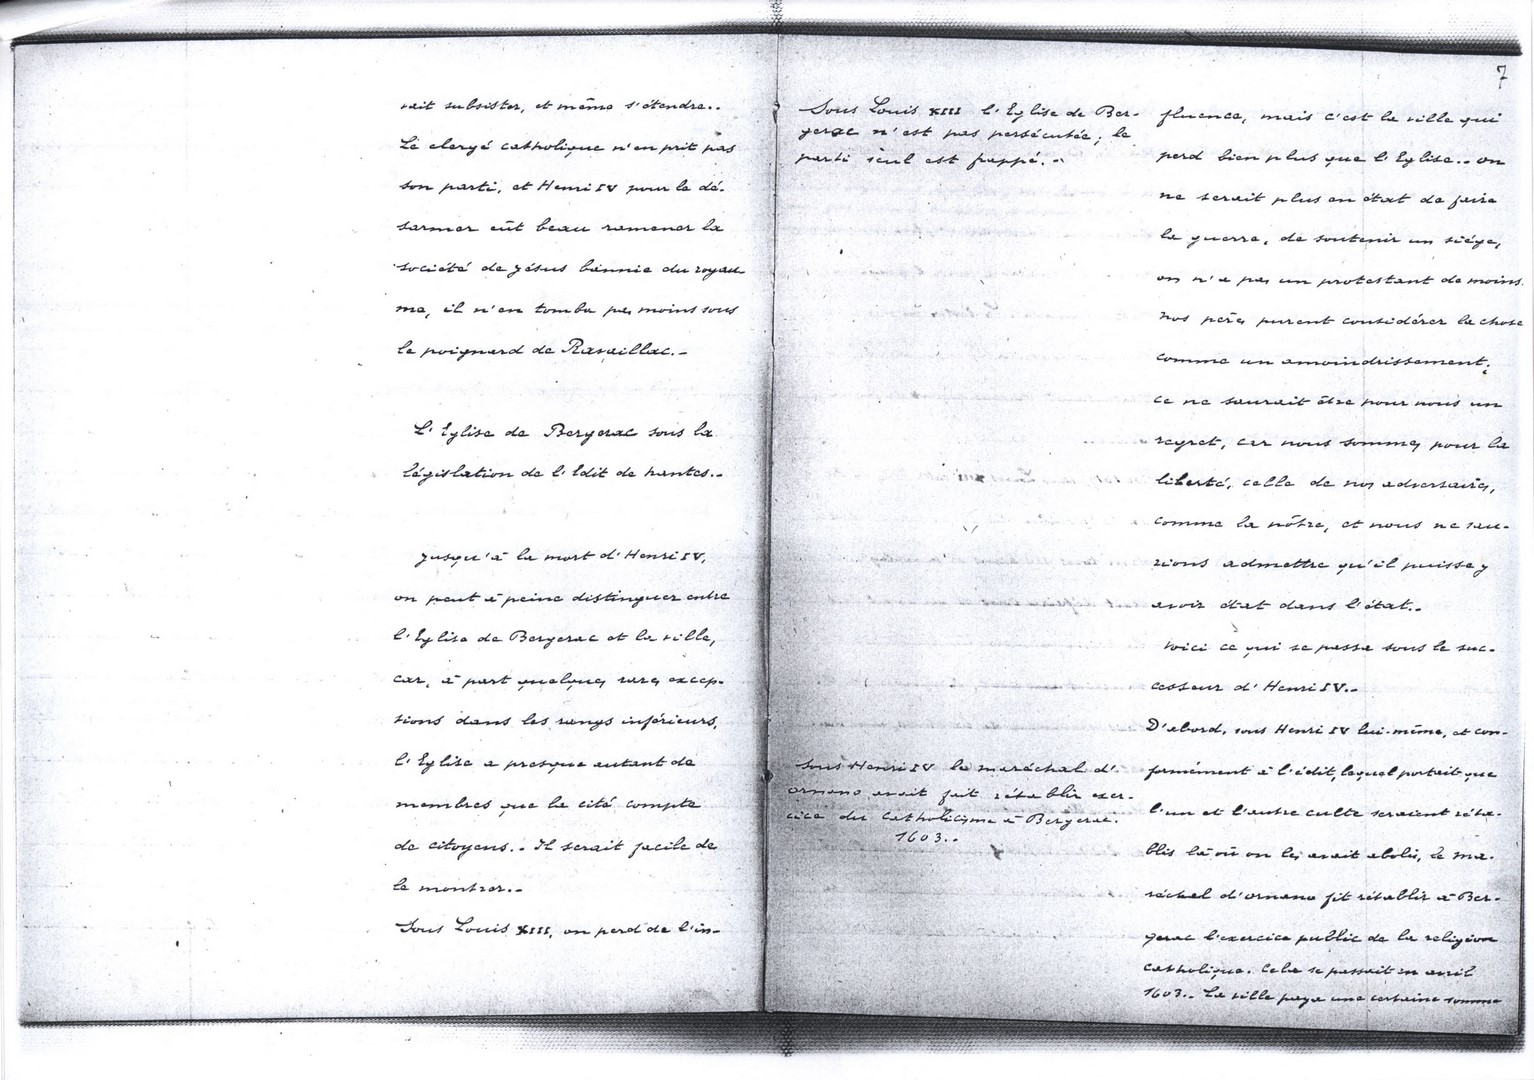 rait subsister, et même s'étendre..
Le clergé catholique n'en prit pas
son parti, et Henri IV pour le dé-
sarmer eût beau ramener la
société de Jésus bannie du royau
me, il n'en tomba pas moins sous
le poignard de Ravaillac.-
L'Eglise de Bergerac sous la
législation de l'Edit de nantes..
Jusqu'à la mort d'Henri IV,
on peut à peine distinguer entre
l'Eglise de Bergerac et la ville,
car, à part quelques rares excep-
tions dans les rangs inférieurs,
l'Eglise a presque autant de
membres que la cité compte
de citoyens.. Il serait facile de
le montrer..
Sous Louis XIII, on perd de l'in-
7
Sous Louis XIII l'Eglise de Ber-
gerac n'est pas persécutée; le
parti seul est frappé..
fluence, mais c'est la ville qui
perd bien plus que l'Eglise.. on
ne serait plus en état de faire
la guerre, de soutenir un siége,
on n'a pas un protestant de moins.
nos pères purent considérer la chose
comme un amoindrissement,
ce ne saurait être pour nous un
regret, car nous sommes pour la
liberté, celle de nos adversaires,
comme la nôtre, et nous ne sau-
rions admettre qu'il puisse y
avoir état dans l'état..
Voici ce qui se passa sous le suc-
cesseur d'Henri IV..
D'abord, sous Henri IV lui-même, et con-
formément à l'édit, lequel portait que
l'un et l'autre culte seraient réta-
blis là où on les avait abolis, le ma-
réchal d'ornano fit rétablir à Ber-
gerac l'exercice public de la religion
catholique. Cela se passait en avril
1603.. La ville paya une certaine somme
Sous Henri IV le maréchal d'
ornano avait fait rétablir exer-
cice du Catholicisme à Bergerac.
1603..